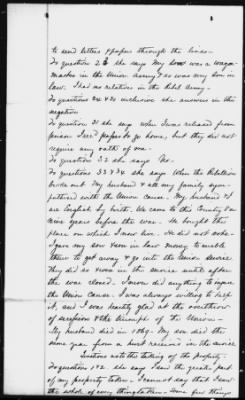 to send letters & papers through the lines -
To question 23 she says My son was a wagon
master in the Union Army & so was my son in
law. I had no relatives in the Rebel Army -
To questions 24 & 30 inclusive she answers in the
negative
To question 31 she says when I was released from
prison I rec'd papers to go home, but they did not
require any oath of me -
To question 32 she says No -
To questions 33 & 34 she says When the Rebellion
broke out My husband & all my family sym-
pathised with the Union Cause. My husband
an English by birth. He came to this Country
nine years before the war. He bought the
place on which I now live. He did not vote -
I gave my son & son in law money to enable
them to get away & go into the Union service
They did so & were in the service until after
the war closed. I never did anything to injure
the Union Cause. I was always willing to help
it, and I was heartily glad at the
of secession & the triumph of the Union -
My husband died in 1869. My son died the
same year from a hurt received in the service
Questions as to the taking of the property.
To question 1 & 2. she says I saw the greater part
of my property taken - I cannot say that I saw
the whole of every thing taken - Some few things